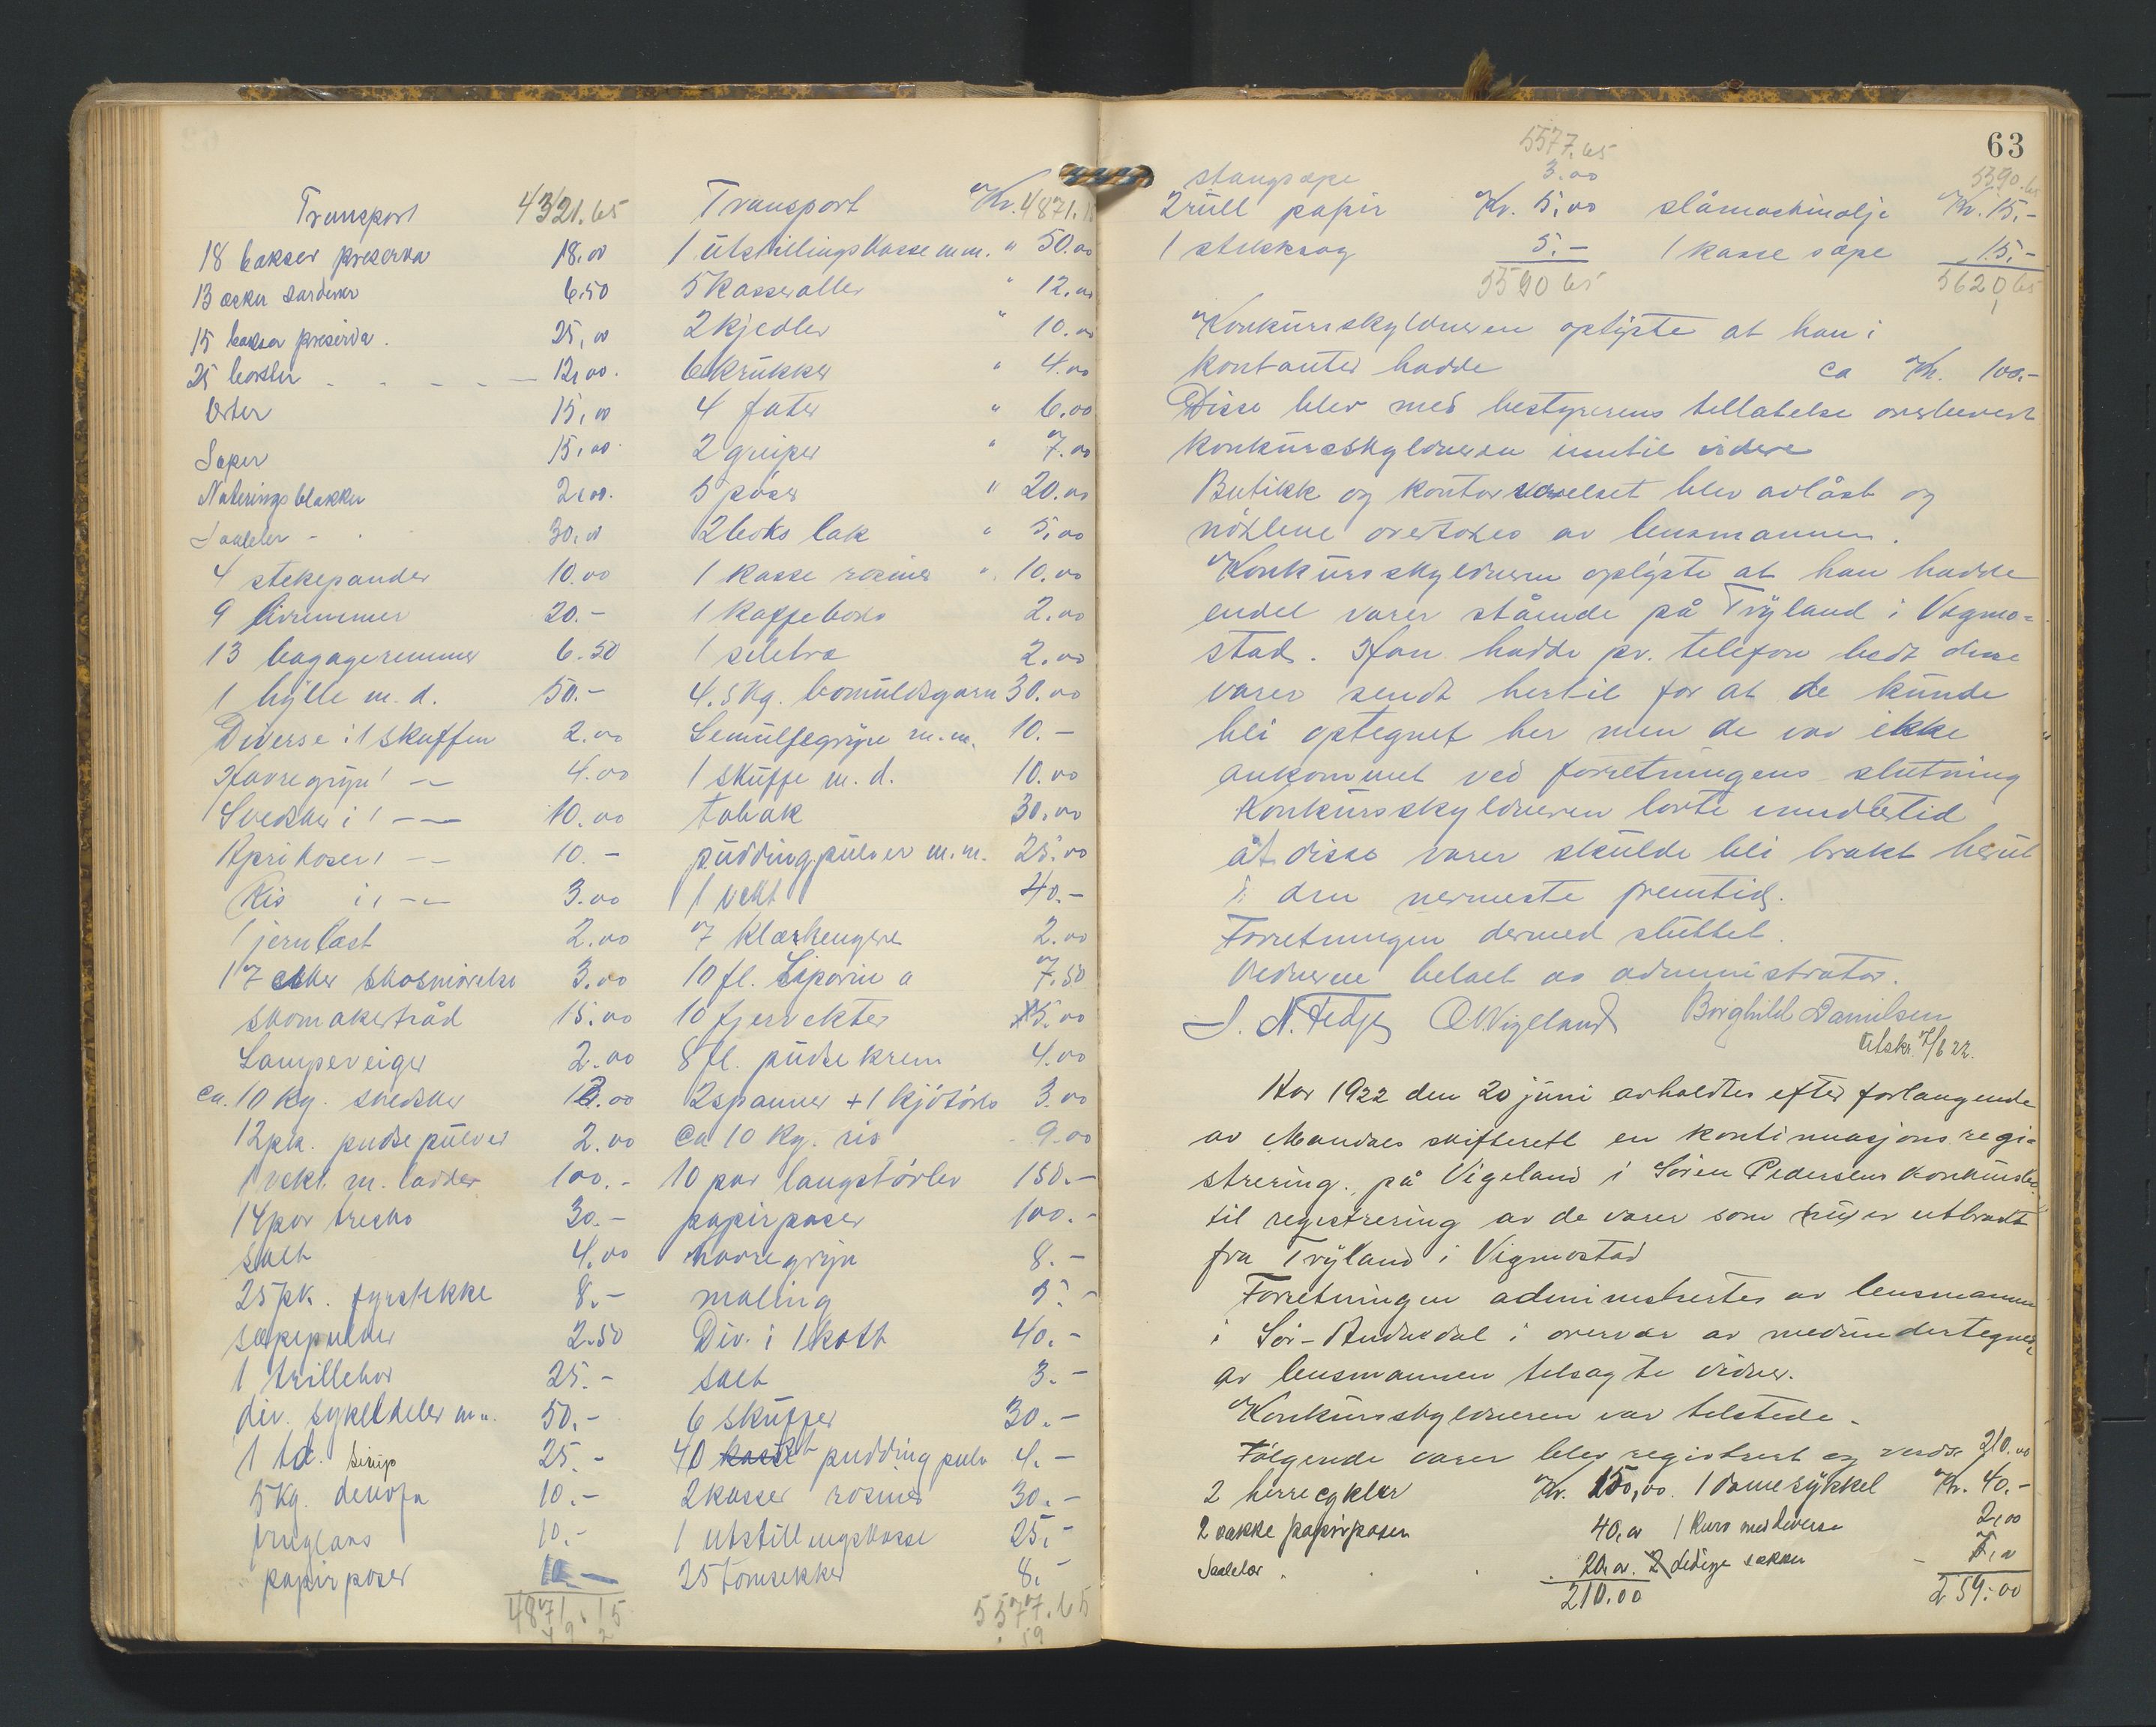 Transport 4321.65
18 bokser preserva 18.00
13 æsker sardiner 6.50
15 bokser preserva. 25,00
25 bokser - - - - 12,00.
Urter 15,00
Saper 15,00
Noteringsblokker 2,00.
Saaleler - 30,00
4 stekepander 10.00
9 livremmer 20.-
13 bagageremmer 6.50
1 hylle m. d. 50.-
Diverse i 1 skuffen 2.00
Havregryn 1 -- 4.00
Svedsker i 1 -- 10.00
Aprikoser 1 -- 10.-
Ris i 1 -- 3.00
1 jernlast 2.00
17 esker skosmørelse 3.00
skomakertråd 15.00
Lampeveiger 2.00
ca. 10 kg. svedsker 10.00
12 pk. pudsepulver 2.00
1 vekt m. lodder 100.-
14 par tresko 30.-
salt 4.00
25 pk. fyrstikke 8.-
sæpepulver 2.50
1 trillebor 25.-
div. sykkeldeler m.m. 50.-
1 td. sirup 25.-
5 kg. denofa 10.-
10.-
papirposer 10.-
4871.15
Transport Kr. 4871.15
1 utstillingskasse m.m. " 50.00
5 kasseroller " 12.00
2 kjedler " 10.00
6 krukker " 4.00
4 fater " 6.00
2 greiper " 7.00
5 poser " 20.00
2 boks lak " 5,00
1 kasse rosiner " 10.00
1 kaffeboks 2.00
1 selebra 2.00
4.5 kg. bomuldsgarn 30.00
Semuljegryn m.m. 10.-
1 skuffe m. d. 10.00
tobak 30.00
puddingpulver m.m. 25.00
1 vekt 40.-
7 klærhengere 2.00
10 fl. Liporin a 7.50
10 fjervekter 15.00
8 fl. pudsekrem 4.00
2 spanner + 1 kjøtøks 3.00
Ca 10 kg. ris 9.00
10 par langstøvler 150.-
papirposer 100.-
havregryn 8.-
maling 5.-
Div. i 1 kott 40.-
salt 3.-
6 skuffer 30.-
40 pudding pulv 4.-
2 kasser rosiner 30.-
1 utstillingskasse 25.-
25 tomsekker 8.-
5577.65
63
5577.65
stangsæpe 3.00 5590.65
2 rull papir Kr. 5,00 slåmaskinolje Kr. 15,-
1 stikksag 5.- 1 kasse sæpe 15,-
5590 65 5620,65
Konkursskyldneren oplyste at han i
kontanter hadde ca Kr. 100.-
Disse blev med bestyrerens tillatelse overlevert
konkursskyldneren inntil videre
Butikk og kontorværelset blev avlåst og
nøklene overtokes av lensmannen.
Konkursskyldneren oplyste at han hadde
endel varer stående på Tryland i Vegmo-
stad. Han hadde pr. telefon bedt disse
varer sendt hertil for at de kunde
bli optegnet her men de var ikke
ankommet ved forretningens slutning
Konkursskyldneren lovte imidlertid
åt disse varer skulde bli brakt herut
i den nermeste fremtid.
Forretningen dermed sluttet.
Vidnerne betalt av administrator.
S. N. Fedje O Vigeland Borghild Danielsen
Utskr. 7/6 22.
Aar 1922 den 20 juni avholdtes efter forlangende
av Mandals skifterett en kontinuasjonsregi-
strering. på Vigeland i Søren Pedersens konkursbo
til registrering av de varer som nu er utbrakt
fra Tryland i Vigmostad
Forretningen administrertes av lensmannen
i Sør-Audnedal i overvær av medundertegnede
av lensmannen tilsagte vidner.
Konkursskyldneren var tilstede.
Følgende varer blev registrert og verdsr 210.00
2 herrecykler Kr. 150,00. 1 damesykkel Kr. 40.-
2 pakke papirposer 40,00 1 kurv med diverse 2,00
Saaleler . . . 20,00. 2 ledige sekker - 7,00
210.00 259.00